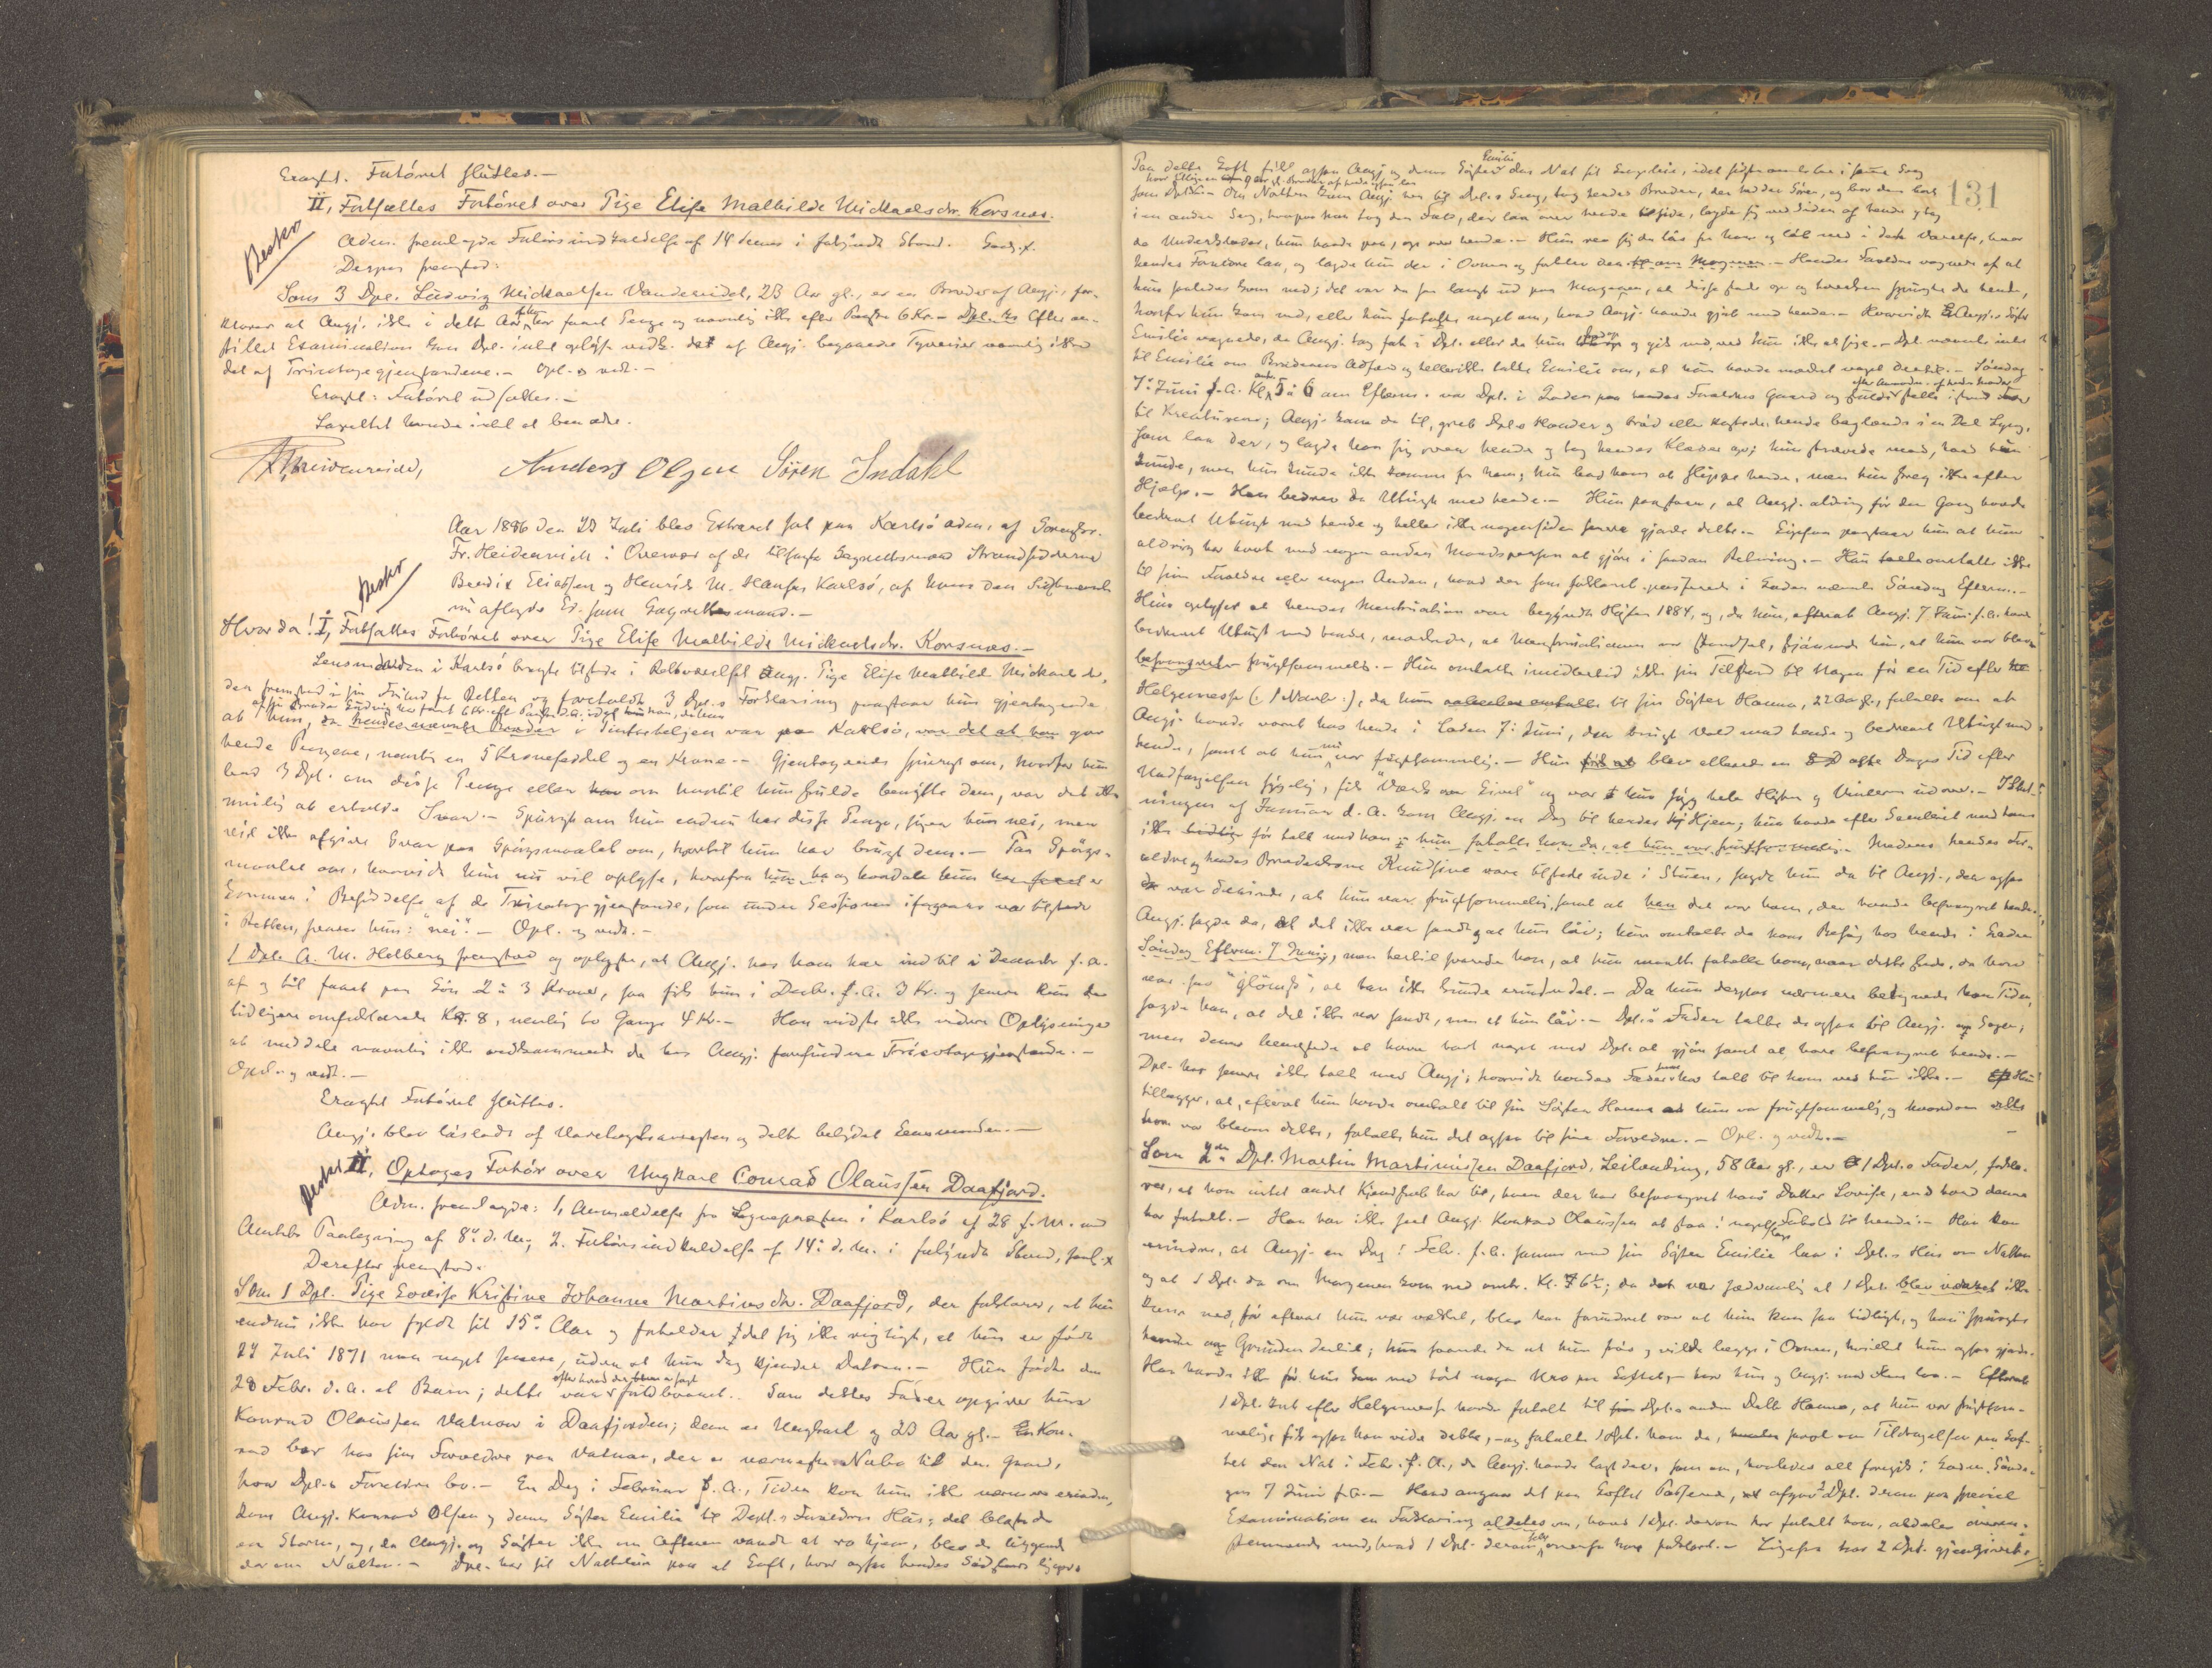 Eragtet: Forhöret sluttes.—
II, Fortsættes Forhöret over Pige Elise Mathilde Mickaelsdr. Korsnæs.
Besker
Adm. fremlagde Forhörsindkaldelse af 14 dennes i forkyndt Stand.
Derpaa fremstod:
Som 3 Dpl. Ludvig Mickaelsen Vandereidet, 23 Aar gl., er en Broder af Angj., for-
klarer at Angj. ikke i dette Aar har faaet Penge og navnlig ikke efter Paaske 6 Kr.— Efter an-
stillet Examination kan Dpl. intet oplyse vedk. det af Angj. begaaede Tyverier navnlig ikke
det af Tricotagegjenstandene.— Opl. & vedt.—
Eragtet: Forhöret udsættes.—
Lavrettet havde intet at bemærke.
Heidenreich, Anders Olsen Sören Indahl
Aar 1886 den 23 Juli blev Extraret sat paa Karlsö adm. af Sorenskr.
Fr. Heidenreich i Overvær af de tilsagte Lagrettesmænd Strandsidderne
Bendix Eliassen og Henrik M. Hansen Karlsö, af hvem den Sidstnævnte
nu aflagde Ed som Lagrettesmand.—
Besker
Hvorda: I, Fortsættes Forhöret over Pige Elise Mathilde Mickaelsdr. Korsnæs.—
Lensmanden i Karlsö bragte tilstede i Retsværelset Angj. Pige Elise Mathilde Mickaelsdr.,
der fremstod i sin Frihed for Retten og foreholdt 3 Dpl.s Forklaring paastaar hun gjentagende
at hun, da hendes nævnte Broder i Pintsehelgen var paa Karlsö, var det at han gav
hende Pengene, nemlig en 5 Kroneseddel og en Krone.— Gjentagende spurgt om, hvorfor hun
bad 3 Dpl. om disse Penge eller om hvortil hun skulde benytte dem, var det ikke
mulig at erholde Svar.— Spurgt om hun endnu har disse Penge, siger hun nei, men
vil ikke afgive Svar paa Spörgsmaalet om, hvortil hun har brugt dem.— Paa Spörgs-
maalet om, hvorvidt hun nu vil oplyse, hvorfra og hvordan hun er
kommen i Besiddelse af de Tricotagegjenstande, som under Sessionen igaar var tilstede
i Retten, svarer hun: "nei".— Opl. og vedt.—
1 Dpl. A. M. Holberg fremstod og oplyste, at Angj. hos ham har indtil i Decembr f. A.
af og til faaet paa Lön 2 à 3 Kroner, saa fik hun i Decbr. f. A. 3 Kr. og senere kun de
tidligere omforklarede Kr. 8, nemlig to Gange 4 Kr.— Han vidste ikke videre Oplysninger
at meddele navnlig ikke vedkommende de hos Angj. forefundne Tricotagegjenstande.—
Opl. og vedt.—
Eragtet Forhöret sluttes.
Angj. blev lösladt af Varetægtsarresten og dette betydet Lensmanden.—
Besker II, Optages Forhör over Ungkarl Conrad Olaussen Daafjord.
Adm. fremlagde: 1, Anmeldelse fra Sognepresten i Karlsö af 28 f. M. med
Amtets Paategning af 8de d. M., 2. Forhörsindkaldelse af 14de d. M. i forkyndt Stand,
Derefter fremstod:
Som 1 Dpl. Pige Lovise Kristine Johanne Martinusdr. Daafjord, der forklarer, at hun
endnu ikke har fyldt sit 15de Aar og forholder det sig ikke rigtigt, at hun er född
27 Juli 1871 men noget senere, uden at hun dog kjender Datoen.— Hun födte den
28 Febr. d. A. et Barn; dette var fuldbaaret. Som dettes Fader opgiver hun
Konrad Olaussen Vatnan i Daafjorden; denne er Ungkarl og 23 Aar gl.— Kon-
rad bor hos sine Forældre paa Vatnan, der er nærmeste Nabo til den Gaard,
hvor Dpl.s Forældre bo.— En Dag i Februar f. A., Tiden kan hun ikke nærmere erindre,
kom Angj. Konrad Olsen og dennes Söster Emilie til Depl.s Forældres Hus; det blæste da
en Storm, og, da Angj. og Söster ikke om Aftenen vandt at ro hjem, blev de liggende
der om Natten.— Dpl. har sit Natteleie paa et Loft, hvor ogsaa hendes Södskende ligger.
131
Paa dette Loft fik ogsaa Angj. og dennes Söster Emilie den Nat sit Sengeleie, idet sidstnævnte laa i samme Seng
som Dpl.— Om Natten kom Angj. hen til Dpl.s Seng, tog hendes Broder, der hedder Sören, og bar ham bort
i en anden Seng, hvorpaa han tog den Fæld, der laa over hende tilside, lagde sig ved Siden af hende og tog
de Underklæder, hun havde paa, op over hende.— Hun rev sig da lös fra ham og löb ned i det Værelse, hvor
hendes Forældre laa, og lagde hun der i Ovnen og fortalte. Hendes Forældre vaagnede af at
hun saaledes kom ned; det var da saa langt ud paa Morgenen, at disse stod op og hverken spurgte de hende,
hvorfor hun kom ned, eller hun fortalte noget om, hvad Angj. havde gjort med hende.— Hvorvidt Angj.s Söster
Emilie vaagnede, da Angj. tog fat i Dpl. eller da hun stod op og gik ned, ved hun ikke at sige.— Dpl. nævnte intet
til Emilie om Broderens Adfærd og hellerikke talte Emilie om, at hun havde mærket noget dertil.— Söndag
7de Juni f. A. Kl. 5 à 6 om Efterm. var Dpl. i Laden paa hendes Forældres Gaard
til Kreaturene; Angj. kom da til, greb Dpl.s Hænder og kastede hende baglænds i en Del Lyng,
som laa der, og lagde han sig ovenpaa hende og tog hendes Klæder op; hun strævede imod, hvad hun
kunde, men hun kunde ikke komme fra ham; hun bad ham at slippe hende, men hun skreg ikke efter
Hjælp.— Han bedrev da Utugt med hende.— Hun paastaar, at Angj. aldrig för den Gang havde
bedrevet Utugt med hende og heller ikke nogensinde senere gjorde dette.— Ligesaa paastaar hun at hun
aldrig har havt med nogen anden Mandsperson at gjöre i saadan Retning.— Hun omtalte ikke
til sine Forældre eller nogen Anden, hvad der som forklaret passerede i Laden nævnte Söndag Efterm.—
Hun oplyser at hendes Menstruation var begyndt Hösten 1884, og, da hun, efterat Angj. 7 Juni f. A. havde
bedrevet Utugt med hende, mærkede, at Menstruationen var standset, skjönnede hun, at hun var bleven
frugtsommelig.— Hun omtalte imidlertid ikke sin Tilstand til Nogen för en Tid efter
Helgemesse (1 Novbr.), da hun til sin Söster Hanna, 22 Aar gl., fortalte om at
Angj. havde været hos hende i Laden 7de Juni, der brugt Vold mod hende og bedrevet Utugt med
hende, samt at hun nu var frugtsommelig.— Hun blev allerede en otte Dages Tid efter
Undfangelsen sygelig, fik "Værk over Livet" og var hun syg hele Hösten og Vinteren udover.— I Slut-
ningen af Januar d. A. kom Angj. en Dag til hendes Hjem; hun havde efter Samleiet med ham
ikke för talt med ham. Medens hendes For-
ældre og hendes Broderkone Knudsine vare tilstede inde i Stuen, sagde hun da til Angj., der ogsaa
var derinde, at hun var frugtsommelig, samt at det var ham, der havde besvangret hende.
Angj. sagde da, at det ikke var sandt og at hun löi; hun omtalte da hans Besög hos hende i Laden
Söndag Efterm. 7 Juni, men hertil svarede han, at hun maatte fortælle ham, naar dette skede, da han
var saa "glömsk", at han ikke kunde erindre det.— Da hun derpaa nærmere betegnede ham Tiden,
sagde han, at det ikke var sandt, men at hun löi.— Dpl.s Fader talte da ogsaa til Angj. om Sagen;
men denne benegtede at have havt noget med Dpl. at gjöre samt at have besvangret hende.—
Dpl. har senere ikke talt med Angj.; hvorvidt hendes Fader har talt til ham ved hun ikke.— Hun
tillægger, at, efterat hun havde omtalt til sin Söster Hanna at hun var frugtsommelig, og hvordan
hun var bleven dette, fortalte hun det ogsaa til sine Forældre.— Opl. og vedt.—
Som 2den Dpl. Martin Martinussen Daafjord, Leilænding, 58 Aar gl., er 1 Dpl.s Fader, forkla-
rer, at han intet andet Kjendskab har til, hvem der har besvangret hans Datter Lovise, end hvad denne
har fortalt.— Han har ikke seet Angj. Konrad Olaussen at staa i noget Forhold til hende.— Han kan
erindre, at Angj. en Dag i Febr. f. A. sammen med sin Söster Emilie laa i Dpl.s Hus om Natten
og at 1 Dpl. da om Morgenen kom ned omtr. Kl. 6½; da det var sædvanlig at 1 Dpl. ikke
kom ned, för efterat hun var vækket, blev han forundret over at hun kom saa tidligt, og han spurgte
hende om Grunden dertil; hun svarede da at hun frös og vilde lægge i Ovnen, hvilket hun ogsaa gjorde.
Han havde ikke för hun kom ned hört nogen Uro paa Loftet, hvor hun og Angj. med flere laa.— Efterat
1 Dpl. kort efter Helgemesse havde fortalt til Dpl.s anden Datter Hanna, at hun var frugtsom-
melig, fik ogsaa han vide dette, og fortalte 1 Dpl. ham da, saavel om Tildragelsen paa Lof-
tet den Nat i Febr. f. A., da Angj. havde lagt der, som om, hvorledes alt foregik i Laden Sönda-
gen 7 Juni f. A.— Hvad angaar det paa Loftet Passerede, afgav 2 Dpl. derom paa speciel
Examination en Forklaring aldeles om, hvad 1 Dpl. derom har fortalt ham, aldeles overens-
stemmende med, hvad 1 Dpl. derom ovenfor have forklaret.— Ligesaa har 2 Dpl. gjengivet